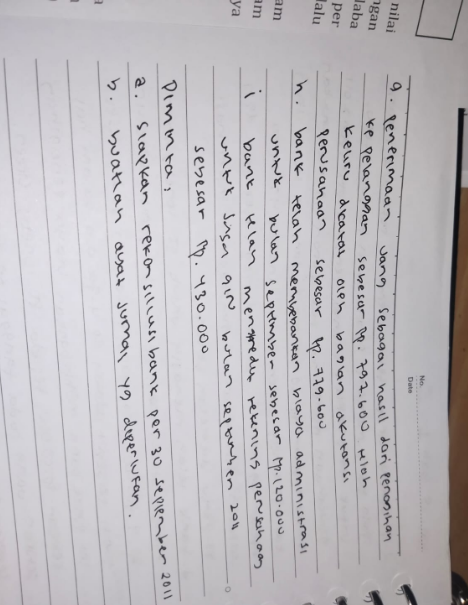 nilai
ngan
laba
per
lalu
am
am
ya
a
No.
Date
g. penerimaan uang sebagai hasil dari penagihan
ke pelanggan sebesar Rp. 797.600 telah
keliru dicatat oleh bagian akutansi
perusahaan sebesar Rp. 779.600
h. bank telah membebankan biaya administrasi
untuk bulan september sebesar Rp.120.000
i bank telah mengkredit rekening perusahaan
untuk jasa giro bulan september 2011
sebesar Rp. 430.000
Diminta,
a. siapkan rekonsiliasi bank per 30 september 2011
b. buatlah ayat jurnal yg diperlukan.